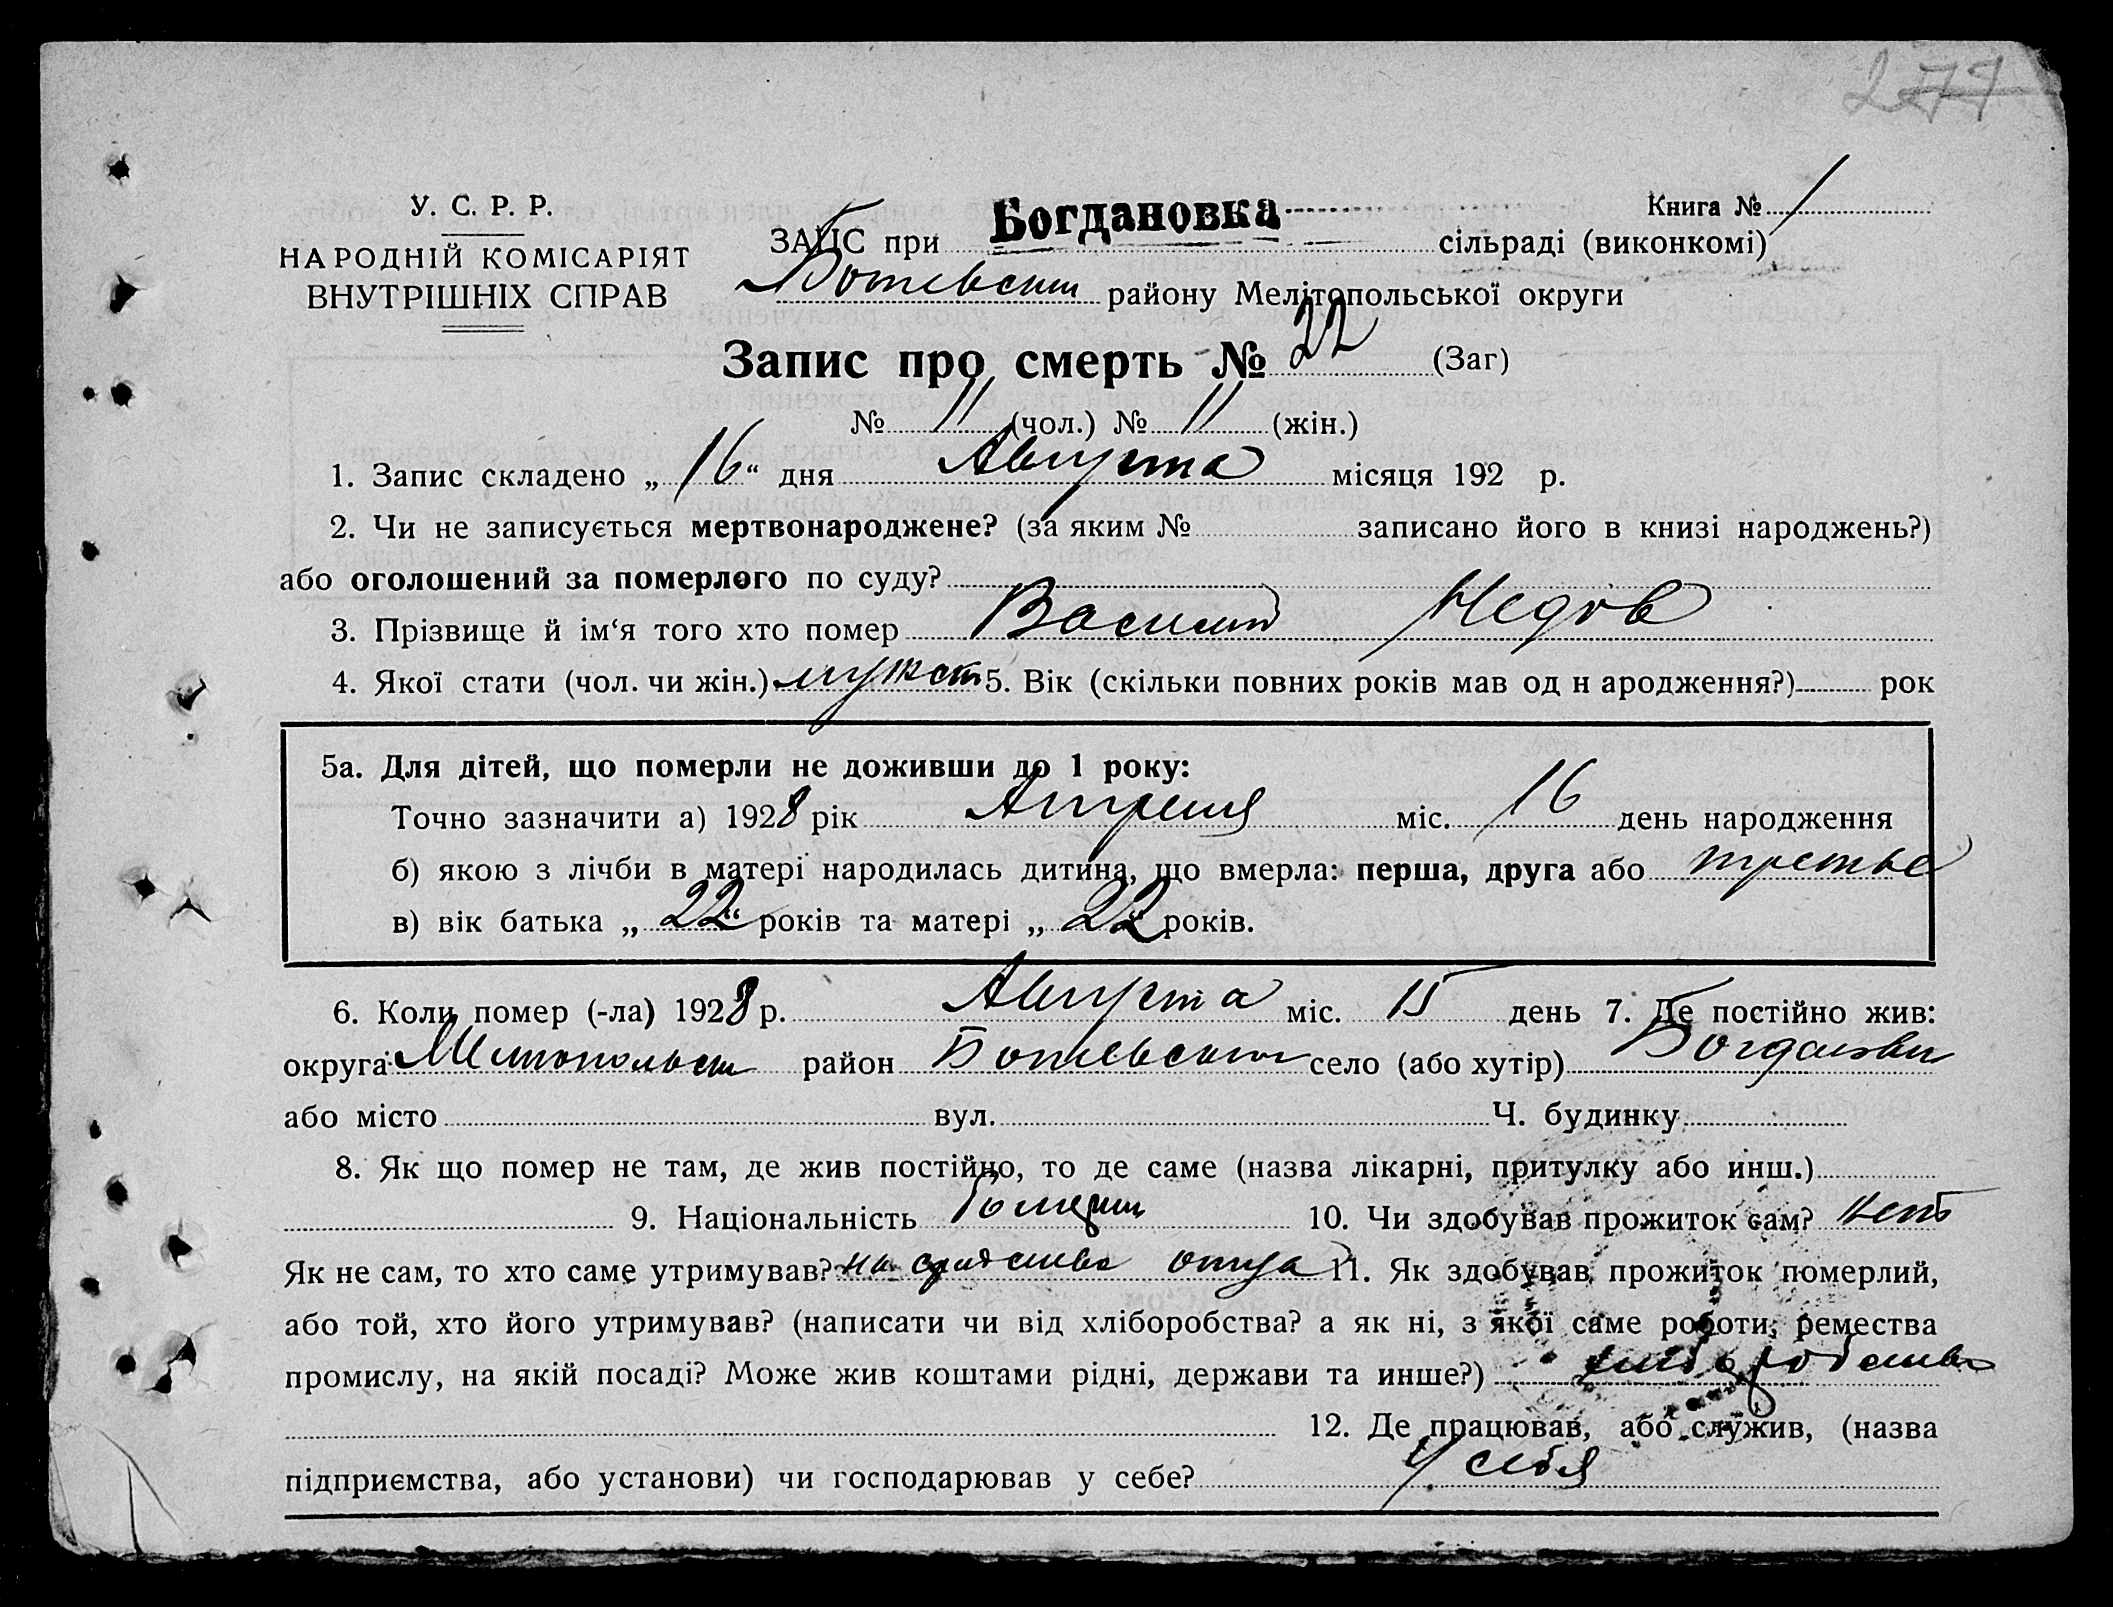 277
У. С. Р. Р.
НАРОДНІЙ КОМІСАРІЯТ
ВНУТРІШНІХ СПРАВ
Книга № 1
ЗАЦС при Богдановка сільраді (виконкомі)
Ботевским району Мелітопольської округи
Запис про смерть № 22 (Заг)
№ 11 (чол.) № 11 (жін.)
1. Запис складено „16“ дня Августа місяця 192 р.
2. Чи не записується мертвонароджене? (за яким № записано його в книзі народжень?)
або оголошений за померлого по суду?
3. Прізвище й ім‘я того хто помер Василий Недов
4. Якої стати (чол. чи жін.) мужск 5. Вік (скільки повних років мав од н ародження?) рок
5а. Для дітей, що померли не доживши до 1 року:
Точно зазначити а) 1928 рік Апреля міс. 16 день народження
б) якою з лічби в матері народилась дитина, що вмерла: перша, друга або третье
в) вік батька „22“ років та матері „22“ років.
6. Коли помер (-ла) 1928 р. Августа міс. 15 день 7. Де постійно жив:
округа Мелитопольск район Ботевским село (або хутір) Богдановки
або місто вул. Ч. будинку
8. Як що помер не там, де жив постійно, то де саме (назва лікарні, притулку або инш.)
9. Національність 10. Чи здобував прожиток сам? нет
Як не сам, то хто саме утримував? на средства отца 11. Як здобував прожиток померлий,
або той, хто його утримував? (написати чи від хліборобства? а як ні, з якої саме роботи, ремества
промислу, на якій посаді? Може жив коштами рідні, держави та инше?) хлеборобство
12. Де працював, або служив, (назва
підприємства, або установи) чи господарював у себе? У себя